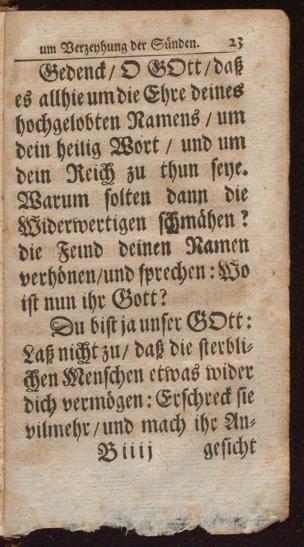 um Verzeyhung der Sünden. 23
Gedenck / O GOtt / daß
es allhie um die Ehre deines
hochgelobten Namens / um
dein heilig Wort / und um
dein Reich zu thun seye.
Warum solten dann die
Widerwertigen schmähen?
die Feind deinen Namen
verhönen / und sprechen: Wo
ist nun ihr Gott?
Du bist ja unser GOtt:
Laß nicht zu / daß die sterbli-
chen Menschen etwas wider
dich vermögen: Erschreck sie
vilmehr / und mach ihr An-
B iiij gesicht